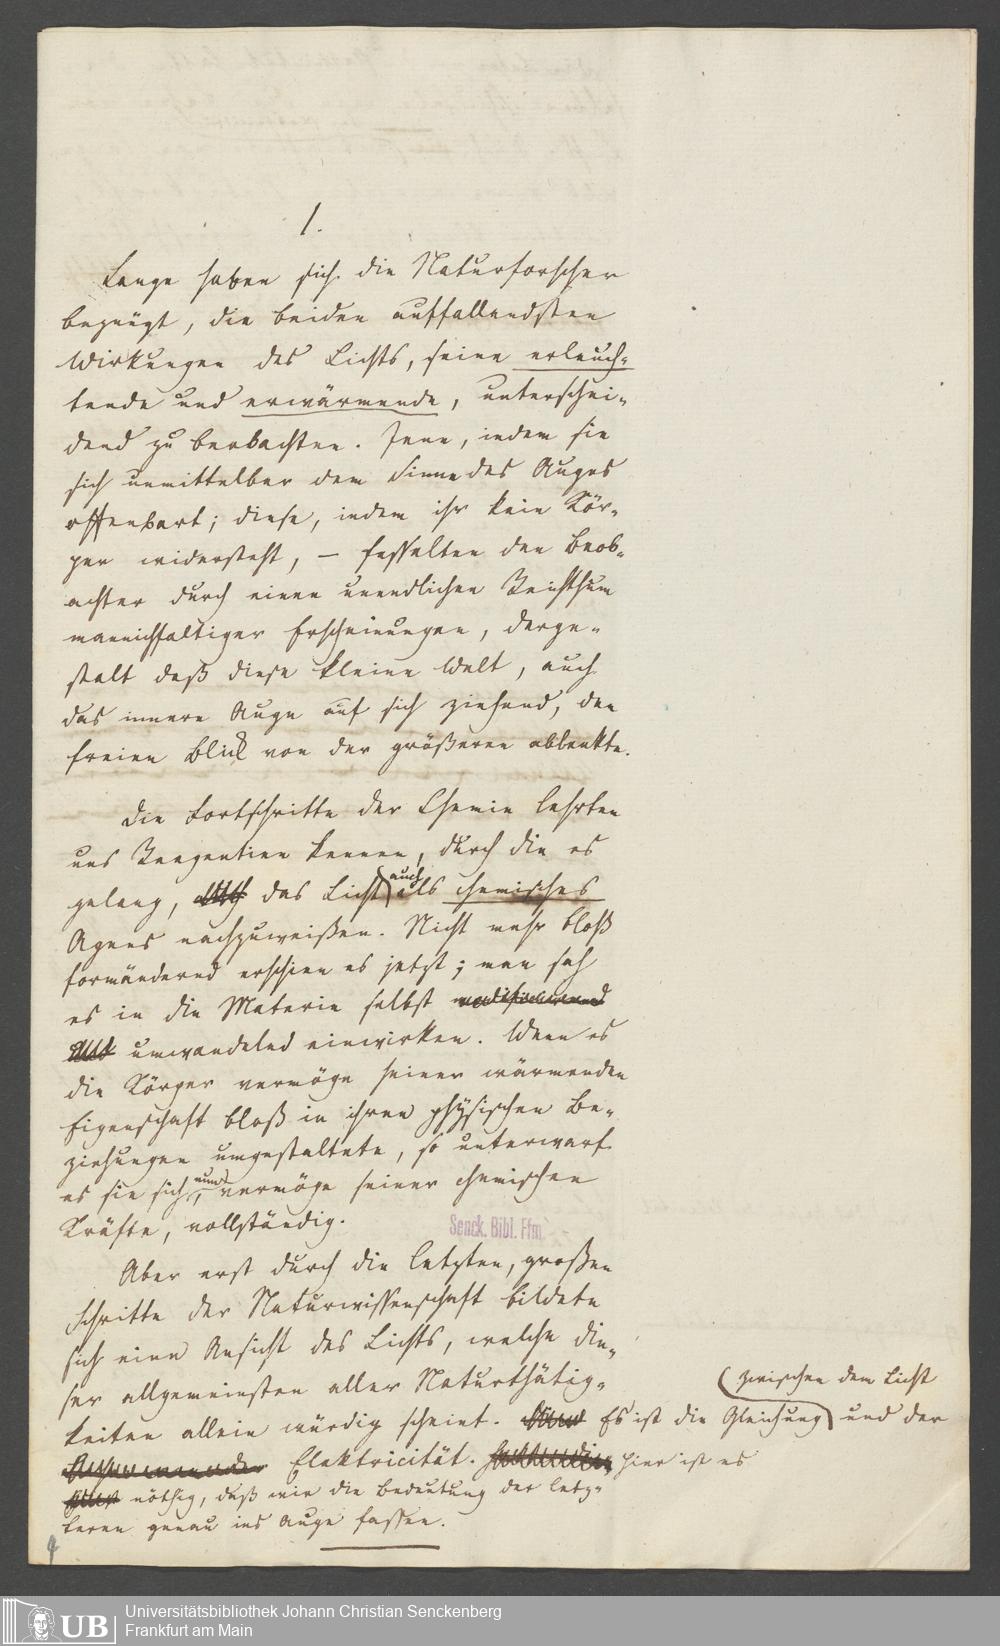 1.
Lange haben sich die Naturforscher
begnügt, die beiden auffallendsten
Wirkungen des Lichts, seine erleuch-
tende und erwärmende, unterschei-
dend zu beobachten. Jene, indem sie
sich unmittelbar dem Sinne des Auges
offenbart; diese, indem ihr kein Kör-
per widersteht, — fesselten den Beob-
achter durch einen unendlichen Reichthum
mannichfaltiger Erscheinungen, derge-
stalt daß diese kleine Welt, auch
das innere Auge auf sich ziehend, den
freien Blick von der größeren ablenkte.
Die Fortschritte der Chemie lehrten
uns Reagentien kennen, durch die es
gelang, auch das Licht auch als chemisches
Agens nachzuweißen. Nicht mehr bloß
formändernd erschien es jetzt; man sah
es in die Materie selbst modificirend
und umwandelnd einwirken. Wenn es
die Körper vermöge seiner wärmenden
Eigenschaft bloß in ihren physischen Be-
ziehungen umgestaltete, so unterwarf
es sie sich nun, vermöge seiner chemischen
Kräfte, vollständig.
Senck. Bibl. Ffm
Aber erst durch die letzten, großen
Schritte der Naturwissenschaft bildete
sich eine Ansicht des Lichts, welche die-
ser allgemeinsten aller Naturthätig-
keiten allein würdig scheint. Es ist die Gleichung zwischen dem Licht und der
Elektricität. Hier ist es
nöthig, daß wir die Bedeutung der letz-
teren genau ins Auge fassen.
UB
Universitätsbibliothek Johann Christian Senckenberg
Frankfurt am Main